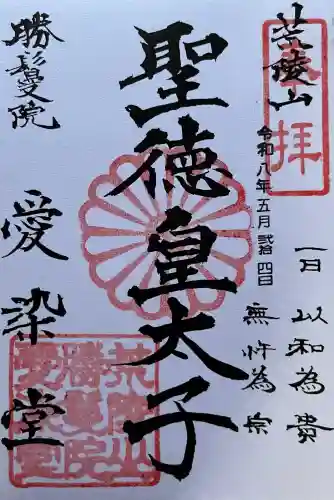 荒陵山
奉拝
令和八年五月弐拾四日
一曰 以和為貴
無忤為宗
聖徳皇太子
勝鬘院
愛染堂
荒陵山
勝鬘院
愛染堂